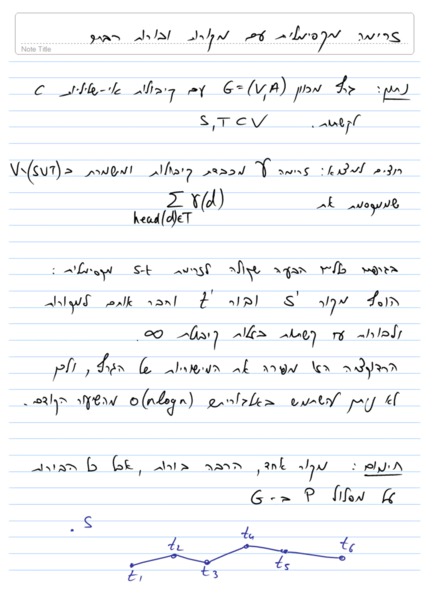 זרימה מקסימלית עם מקורות ובורות רבים
Note Title
נתון: גרף מכוון G=(V,A) עם קיבולות אי-שליליות c
לקשתות. S,T⊂V
רוצים למצוא: זרימה γ מכבדת קיבולות ומשמרת ב-V\(S∪T)
שממקסמת את Σ γ(d)
head(d)∈T
בגרפים כלליים הבעיה שקולה לזרימת s-t מקסימלית:
הוסף מקור s' ובור t' וחבר אותם למקורות
ולבורות עם קשתות בעלות קיבולת ∞.
הרדוקציה הזו מפירה את המישוריות של הגרף, ולכן
לא ניתן להשתמש באלגוריתם O(nlogn) מהשיעור הקודם.
חימום: מקור אחד, הרבה בורות, אבל כל הבורות
על מסלול P ב-G
s
t1 t2 t3 t4 t5 t6